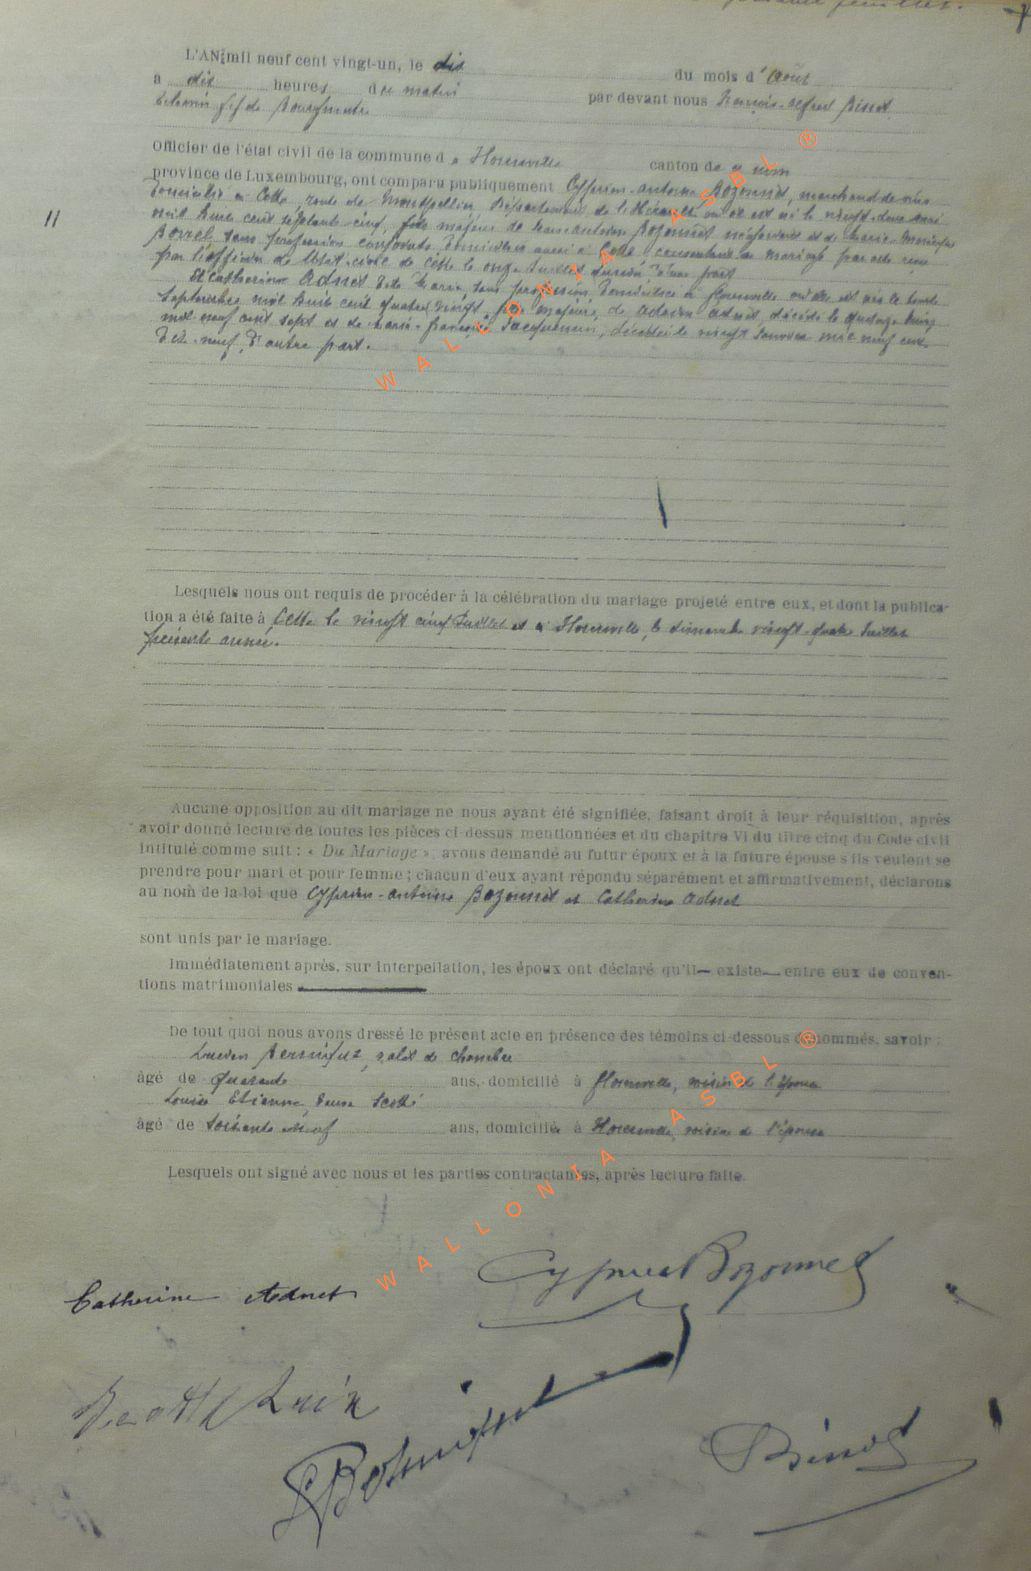 L'AN mil neuf cent vingt-un, le dix du mois d'Août
a dix heures du matin par devant nous François-Alfred Binet
Echevin ff de Bourgmestre
Officier de l'état civil de la commune de Florenville canton de ce nom
province de Luxembourg, ont comparu publiquement Cyprien-Antoine Bozonnet, marchand de vins
domicilié à Cette, route de Montpellier Département de l'Hérault où il est né le vingt-deux
mil huit cent septante cinq, fils majeur de Jean Antoine Bozonnet négociant et de Marie
Borrel sans profession conjoints domiciliés aussi à Cette, consentant au mariage par acte reçu
par l'officier de l'état-civil de Cette le onze Juillet dernier d'une part
et Catherine Adnet dite Marie sans profession, domiciliée à Florenville où elle est née le trente
septembre mil huit cent quatre vingt, fille majeure, de Adrien Adnet, décédé le quatorze
mil neuf cent sept et de Marie-Françoise Jacquemin, décédée le vingt Janvier mil neuf cent
dix-neuf, d'autre part.
11
Lesquels nous ont requis de procéder à la célébration du mariage projeté entre eux, et dont la publica-
tion a été faite à Cette le vingt cinq Juillet et à Florenville, le dimanche vingt-quatre Juillet
présente année.
Aucune opposition au dit mariage ne nous ayant été signifiée, faisant droit à leur réquisition, après
avoir donné lecture de toutes les pièces ci-dessus mentionnées et du chapitre VI du titre cinq du Code civil
intitulé comme suit : « Du Mariage », avons demandé au futur époux et à la future épouse s'ils veulent se
prendre pour mari et pour femme ; chacun d'eux ayant répondu séparément et affirmativement, déclarons
au nom de la loi que Cyprien-Antoine Bozonnet et Catherine Adnet
sont unis par le mariage.
Immédiatement après, sur interpellation, les époux ont déclaré qu'il — existe — entre eux de conven-
tions matrimoniales
De tout quoi nous avons dressé le présent acte en présence des témoins ci-dessous dénommés, savoir :
Lucien valet de chambre
âgé de quarante ans, domicilié à Florenville, voisin de l'épouse
Louise Etienne, veuve
âgé de soixante neuf ans, domiciliée à Florenville, voisine de l'épouse
Lesquels ont signé avec nous et les parties contractantes, après lecture faite.
Catherine Adnet Cyprien Bozonnet
Binet
WALLONIA ASBL ®
WALLONIA ASBL ®